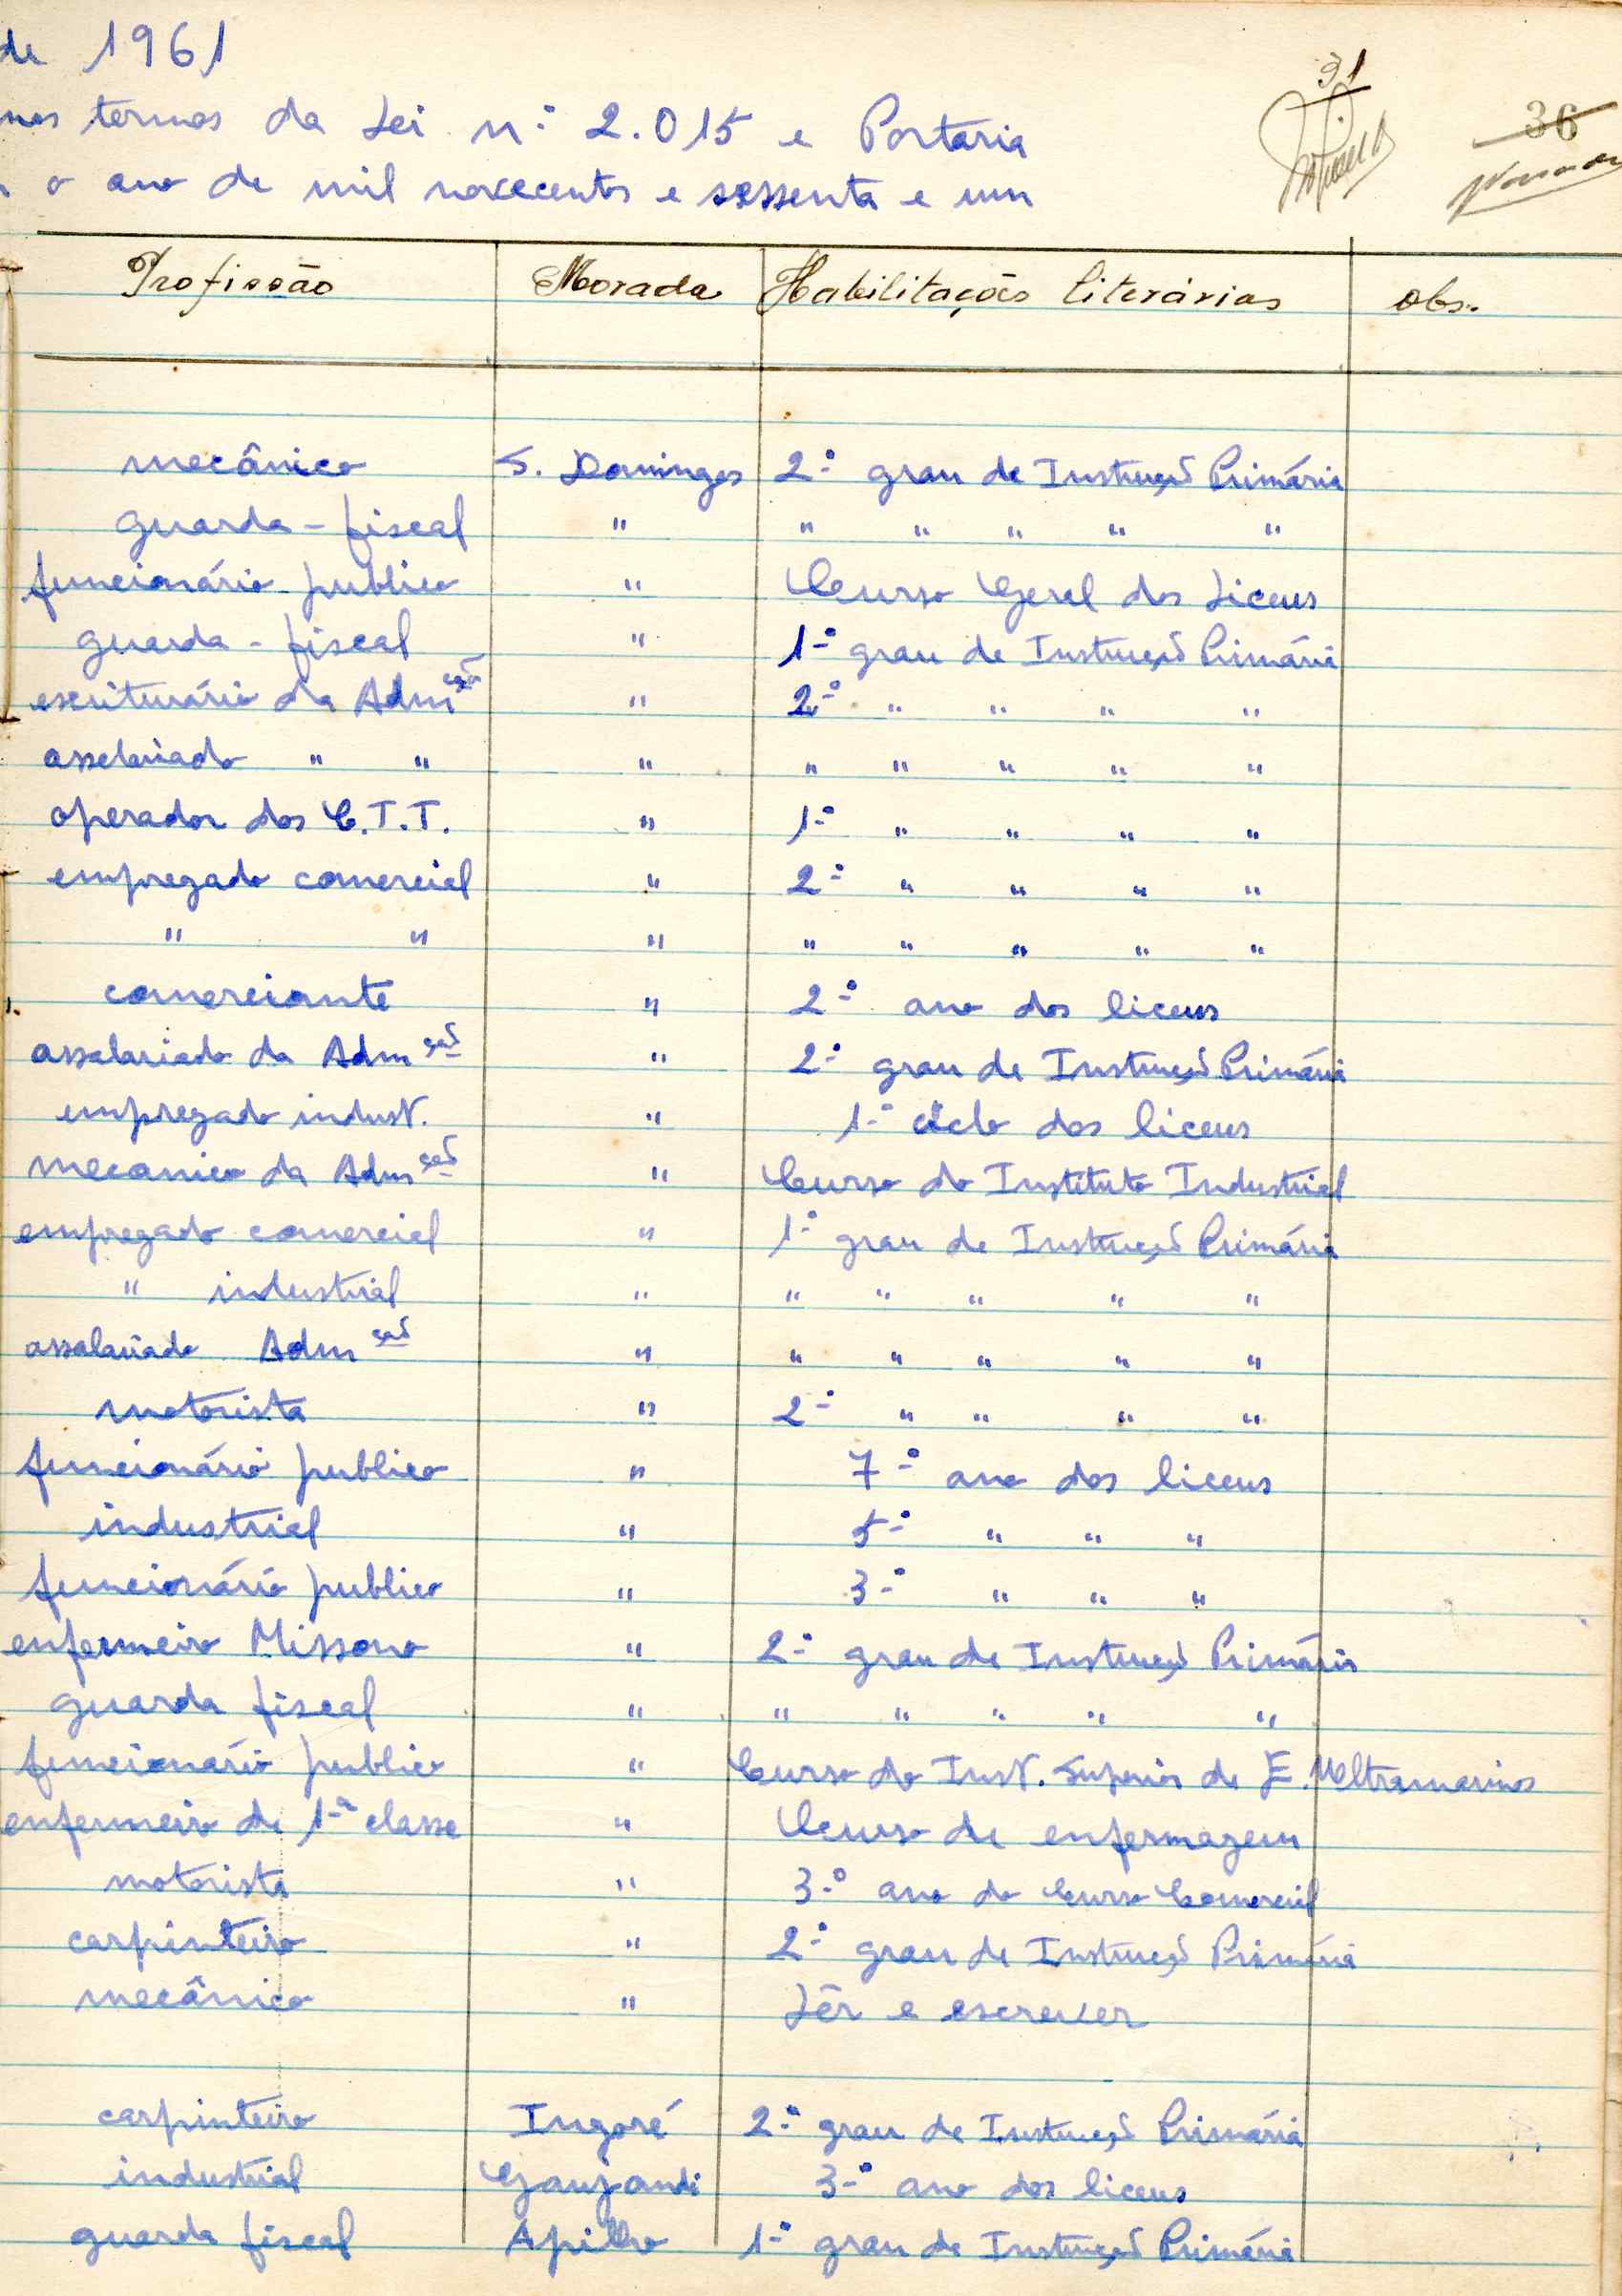 de 1961
nos termos da Lei n.º 2.015 e Portaria
o ano de mil novecentos e sessenta e um
31
36
Profissão Morada Habilitações literárias Obs.
mecânico S. Domingos 2.º grau de Instrução Primária
guarda-fiscal " " " " " "
funcionário publico " Curso Geral dos Liceus
guarda-fiscal " 1.º grau de Instrução Primária
escriturário da Adm ção " 2.º " " " "
asselariado " " " " " " " "
operador dos C.T.T. " 1.º " " " "
empregado comercial " 2.º " " " "
" " " " " " " "
comerciante " 2.º ano dos liceus
assalariado da Adm ção " 2.º grau de Instrução Primária
empregado indust. " 1.º ciclo dos liceus
mecanico da Adm ção " Curso do Instituto Industrial
empregado comercial " 1.º grau de Instrução Primária
" industrial " " " " " "
assalariado Adm ção " " " " " "
motorista " 2.º " " " "
funcionário publico " 7.º ano dos liceus
industrial " 5.º " " "
funcionário publico " 3.º " " "
enfermeiro Missono " 2.º grau de Instrução Primária
guarda fiscal " " " " " "
funcionario publico " Curso do Inst. Superior de E. Ultramarinos
enfermeiro de 1.ª classe " Curso de enfermagem
motorista " 3.º ano do Curso Comercial
carpinteiro " 2.º grau de Instrução Primária
mecânico " Lêr e escrever
carpinteiro Ingoré 2.º grau de Instrução Primária
industrial Gaujandi 3.º ano dos liceus
guarda fiscal Apilho 1.º grau de Instrução Primária